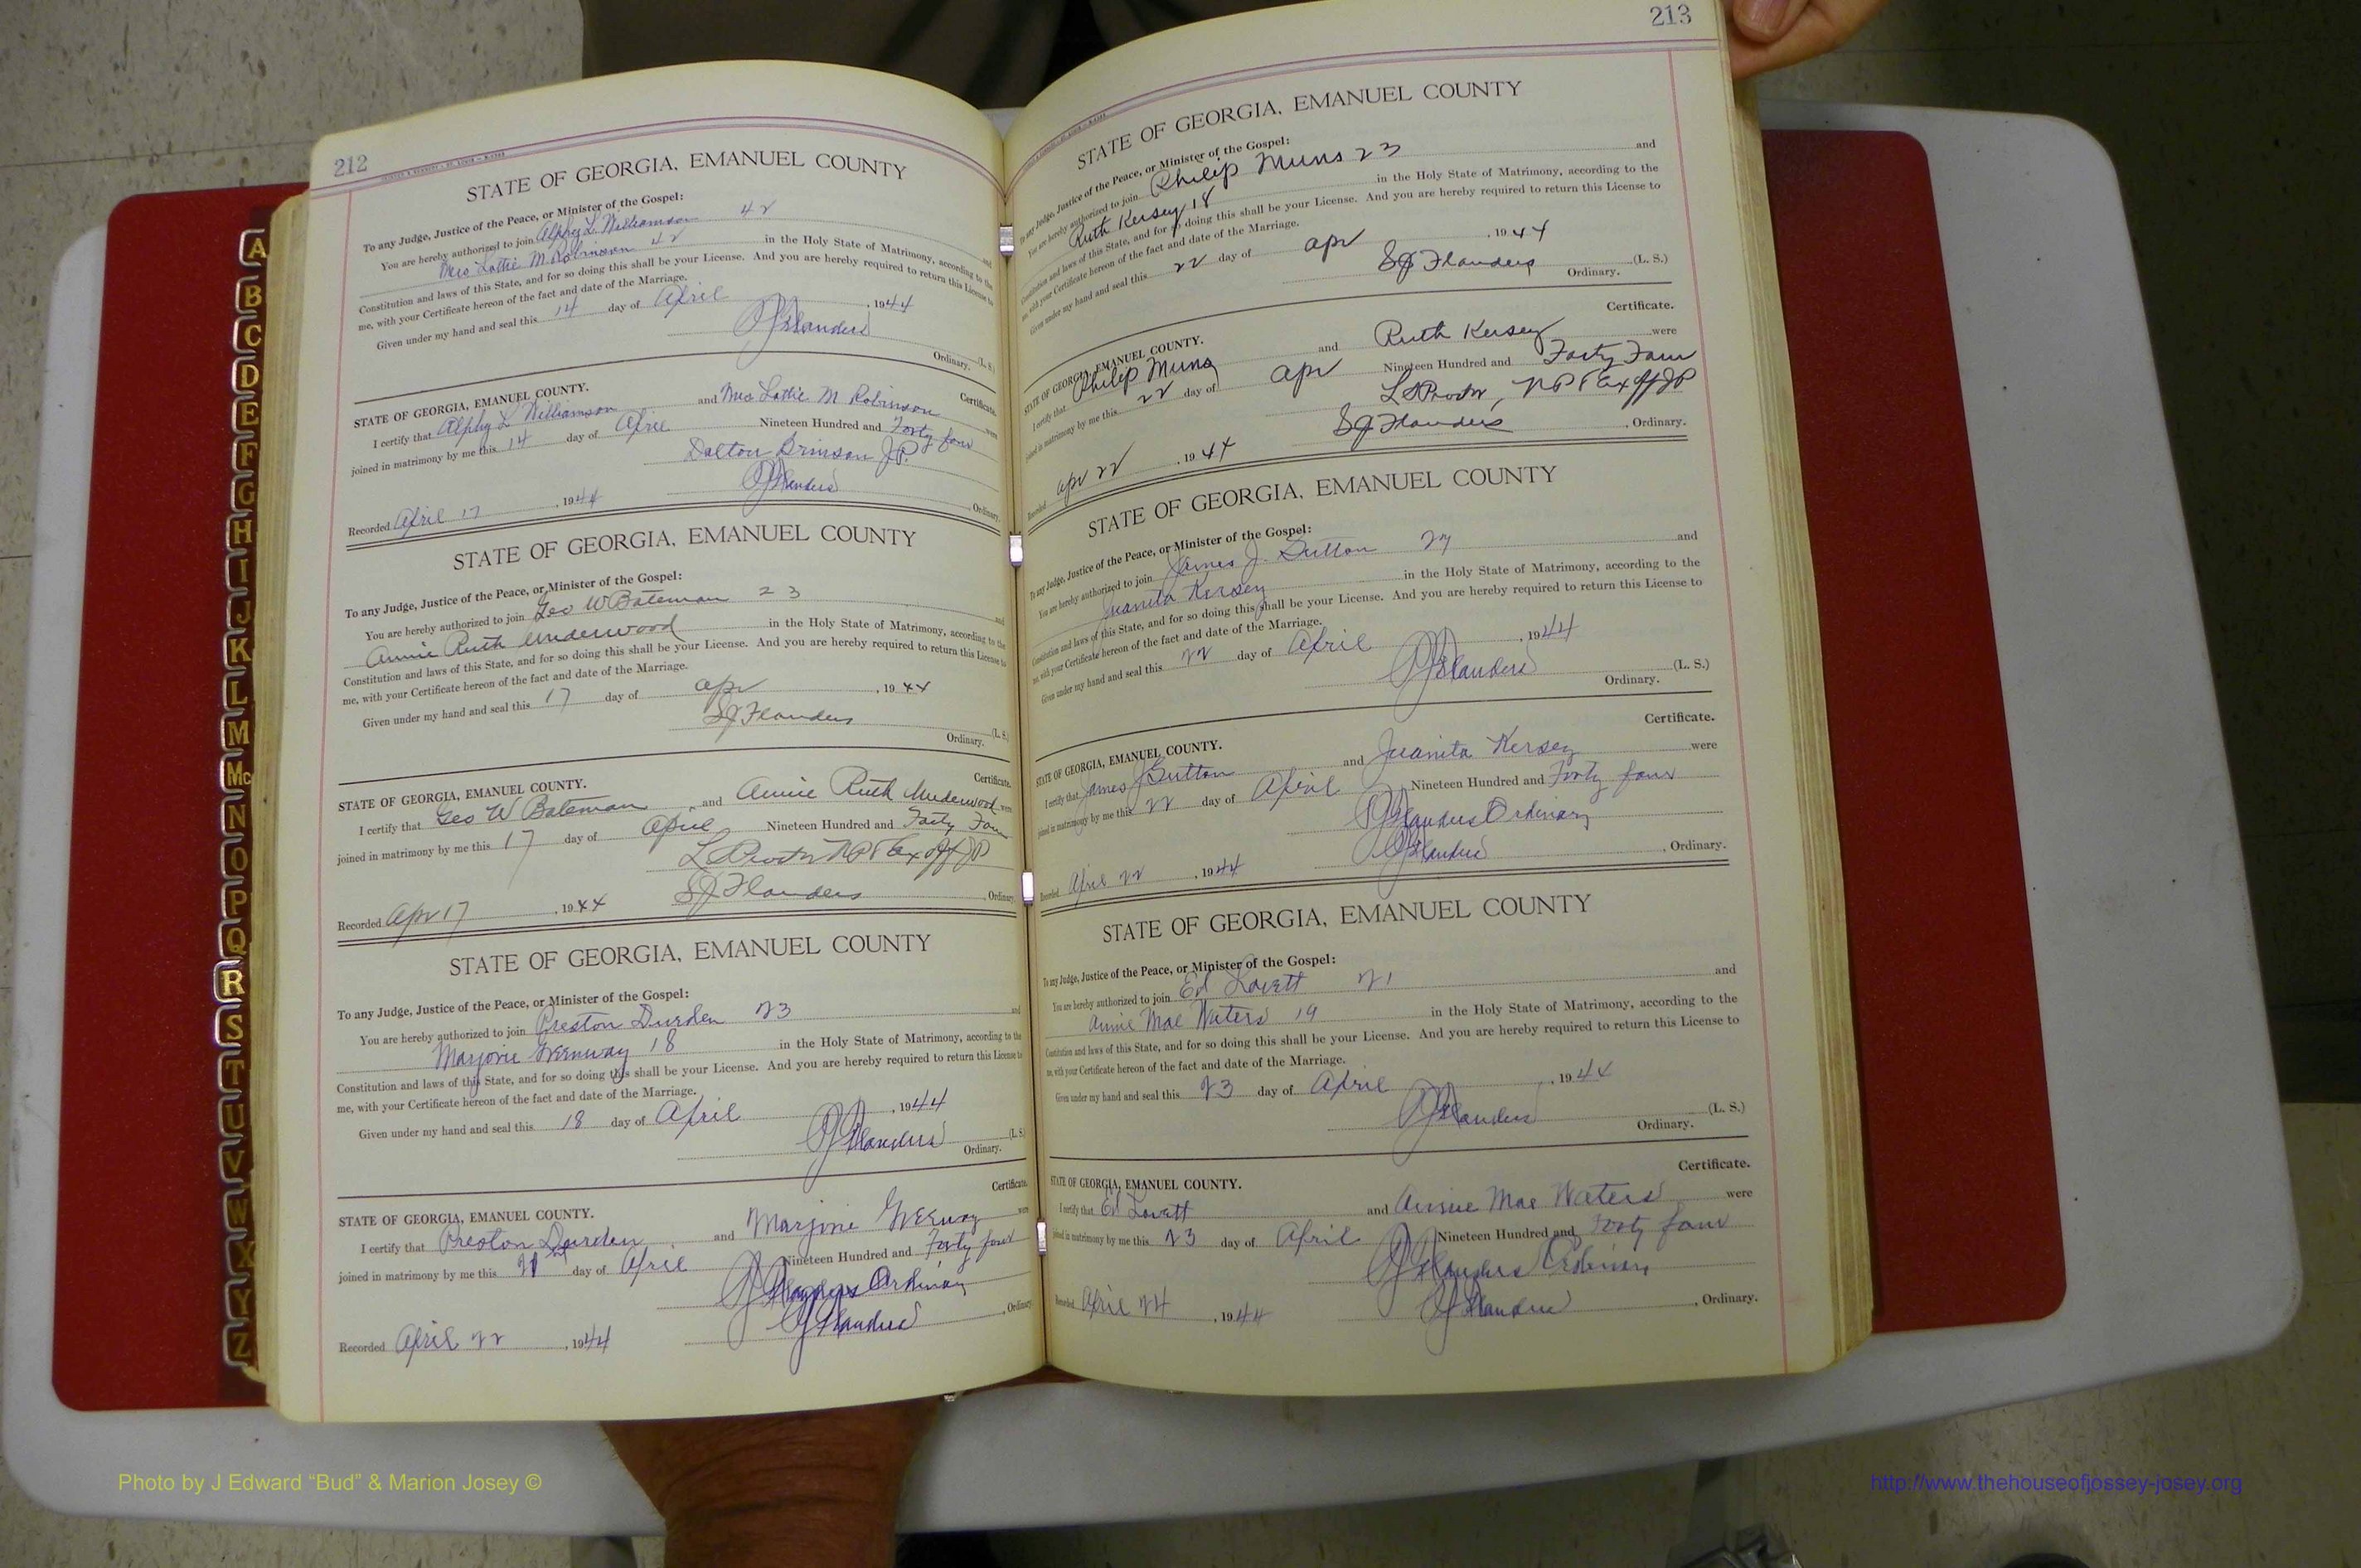 212
STATE OF GEORGIA, EMANUEL COUNTY
To any Judge, Justice of the Peace, or Minister of the Gospel:
You are hereby authorized to join Alphy L. Williamson 42 and
Mrs Lottie M Robinson 42 in the Holy State of Matrimony, according to the
Constitution and laws of this State, and for so doing this shall be your License. And you are hereby required to return this License to
me, with your Certificate hereon of the fact and date of the Marriage.
Given under my hand and seal this 14 day of April, 1944
Flanders (L. S.)
Ordinary.
Certificate.
STATE OF GEORGIA, EMANUEL COUNTY.
I certify that Alphy L Williamson and Mrs Lottie M Robinson were
joined in matrimony by me this 14 day of April Nineteen Hundred and Forty four
Dalton Brinson J.P.
Recorded April 17, 1944 Flanders, Ordinary.
STATE OF GEORGIA, EMANUEL COUNTY
To any Judge, Justice of the Peace, or Minister of the Gospel:
You are hereby authorized to join Geo W Bateman 23 and
Annie Ruth Underwood in the Holy State of Matrimony, according to the
Constitution and laws of this State, and for so doing this shall be your License. And you are hereby required to return this License to
me, with your Certificate hereon of the fact and date of the Marriage.
Given under my hand and seal this 17 day of apr, 1944
SJ Flanders (L. S.)
Ordinary.
Certificate.
STATE OF GEORGIA, EMANUEL COUNTY.
I certify that Geo W Bateman and Annie Ruth Underwood were
joined in matrimony by me this 17 day of April Nineteen Hundred and Forty Four
NP & Ex off JP
Recorded Apr 17, 1944 SJ Flanders, Ordinary
STATE OF GEORGIA, EMANUEL COUNTY
To any Judge, Justice of the Peace, or Minister of the Gospel:
You are hereby authorized to join Preston Durden 23 and
Marjorie Greenway 18 in the Holy State of Matrimony, according to the
Constitution and laws of this State, and for so doing this shall be your License. And you are hereby required to return this License to
me, with your Certificate hereon of the fact and date of the Marriage.
Given under my hand and seal this 18 day of April, 1944
Flanders (L. S.)
Ordinary.
Certificate.
STATE OF GEORGIA, EMANUEL COUNTY.
I certify that Preston Durden and Marjorie were
joined in matrimony by me this day of April Nineteen Hundred and Forty four
Flanders Ordinary
Recorded April 22, 1944 Flanders, Ordinary
213
STATE OF GEORGIA, EMANUEL COUNTY
To any Judge, Justice of the Peace, or Minister of the Gospel:
You are hereby authorized to join Philip Muns 23 and
Ruth Kersey 18 in the Holy State of Matrimony, according to the
Constitution and laws of this State, and for so doing this shall be your License. And you are hereby required to return this License to
me, with your Certificate hereon of the fact and date of the Marriage.
Given under my hand and seal this 22 day of apr, 1944
SJ Flanders (L. S.)
Ordinary.
Certificate.
STATE OF GEORGIA, EMANUEL COUNTY.
I certify that Philip Muns and Ruth Kersey were
joined in matrimony by me this 22 day of apr Nineteen Hundred and Forty Four
NP & Ex off JP
Recorded apr 22, 1944 SJ Flanders, Ordinary.
STATE OF GEORGIA, EMANUEL COUNTY
To any Judge, Justice of the Peace, or Minister of the Gospel:
You are hereby authorized to join James J. Sutton and
Juanita Kersey in the Holy State of Matrimony, according to the
Constitution and laws of this State, and for so doing this shall be your License. And you are hereby required to return this License to
me, with your Certificate hereon of the fact and date of the Marriage.
Given under my hand and seal this 22 day of April, 1944
Flanders (L. S.)
Ordinary.
Certificate.
STATE OF GEORGIA, EMANUEL COUNTY.
I certify that James J Sutton and Juanita Kersey were
joined in matrimony by me this 22 day of April Nineteen Hundred and Forty four
Flanders Ordinary
Recorded April 22, 1944 Flanders, Ordinary.
STATE OF GEORGIA, EMANUEL COUNTY
To any Judge, Justice of the Peace, or Minister of the Gospel:
You are hereby authorized to join Ed Lovett 21 and
Annie Mae Waters 19 in the Holy State of Matrimony, according to the
Constitution and laws of this State, and for so doing this shall be your License. And you are hereby required to return this License to
me, with your Certificate hereon of the fact and date of the Marriage.
Given under my hand and seal this 23 day of April, 1944
Flanders (L. S.)
Ordinary.
Certificate.
STATE OF GEORGIA, EMANUEL COUNTY.
I certify that Ed Lovett and Annie Mae Waters were
joined in matrimony by me this 23 day of April Nineteen Hundred and Forty four
Flanders Ordinary
Recorded April 24, 1944 Flanders, Ordinary.
A
B
C
D
E
F
G
H
I
J
K
L
M
Mc
N
O
P
Q
R
S
T
U
V
W
X
Y
Z
Photo by J Edward “Bud” & Marion Josey ©
http://www.thehouseofjossey-josey.org